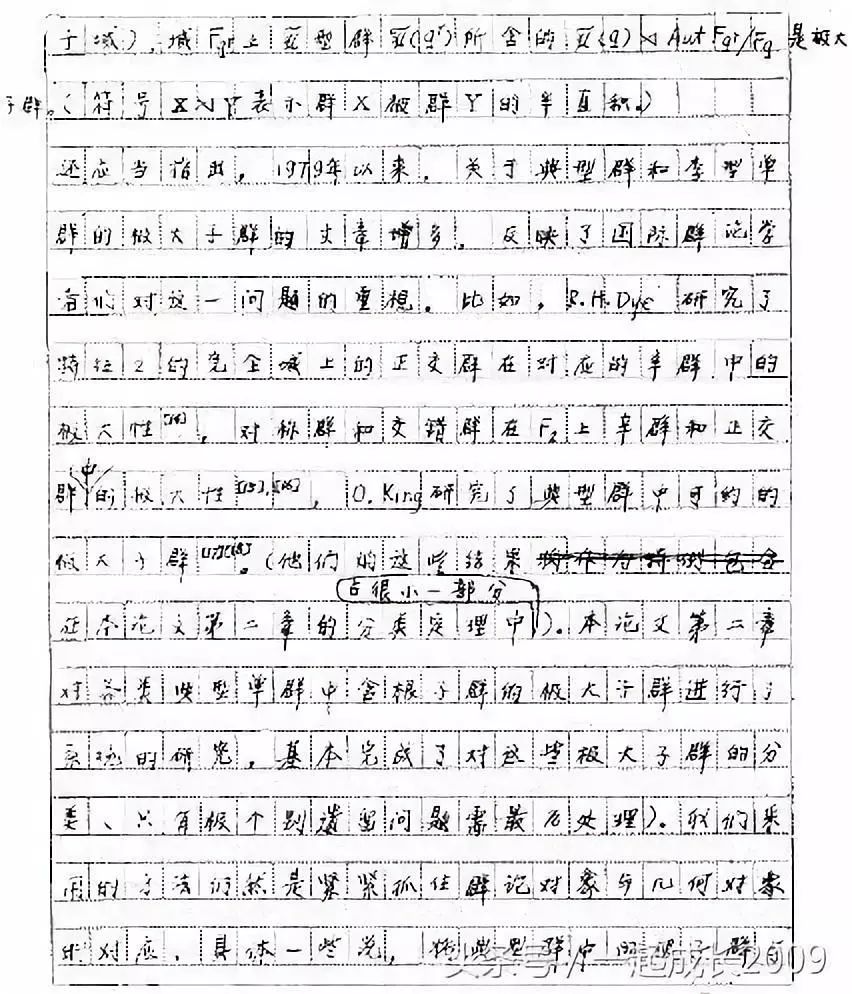 子域),域Fqr上X型群X(qr)所含的X(q)⋊AutFqr/Fq是极大
子群。(符号X⋊Y表示群X被群Y的半直积。)
还应当指出,1979年以来,关于典型群和李型单
群的极大子群的文章增多。反映了国际群论学
者们对这一问题的重视。比如,R.H.Dye研究了
特征2的完全域上的正交群在对应的辛群中的
极大性[14],对称群和交错群在F2上辛群和正交
群中的极大性[15],[16],O.King研究了典型群中可约的
极大子群[17][18]。(他们的这些结果
占很小一部分
在本论文第二章的分类定理中)。本论文第二章
对各类典型单群中含根子群的极大子群进行了
系统的研究,基本完成了对这些极大子群的分
类、只有极个别遗留问题需最后处理)。我们采
用的方法仍然是紧紧抓住群论对象与几何对象
的对应,具体一些说,将典型群中的根子群与
头条号/一起成长2009